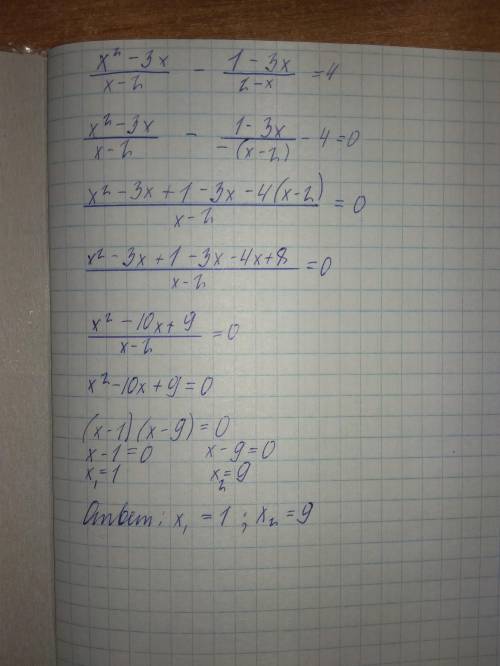 x² - 3x / x - 2 - 1 - 3x / 2 - x = 4
x² - 3x / x - 2 - 1 - 3x / -(x - 2) - 4 = 0
x² - 3x + 1 - 3x - 4(x - 2) / x - 2 = 0
x² - 3x + 1 - 3x - 4x + 8 / x - 2 = 0
x² - 10x + 9 / x - 2 = 0
x² - 10x + 9 = 0
(x - 1)(x - 9) = 0
x - 1 = 0 x - 9 = 0
x₁ = 1 x₂ = 9
Ответ: x₁ = 1 ; x₂ = 9